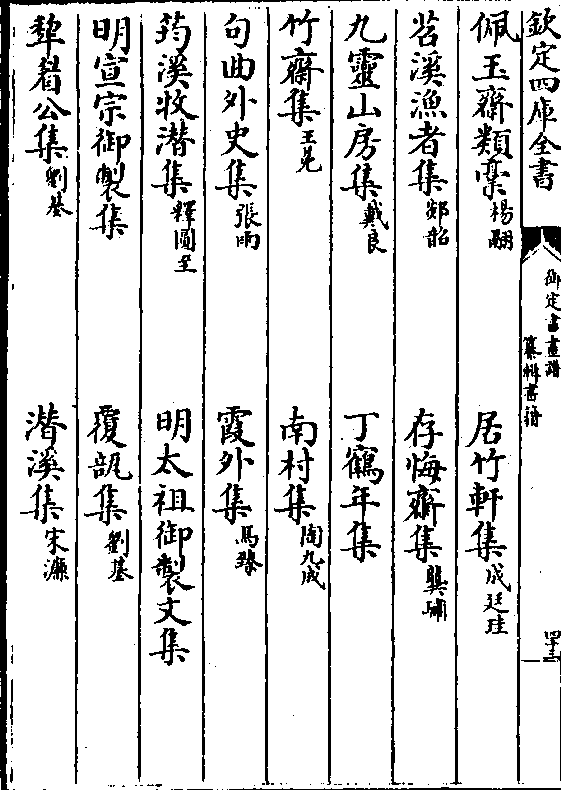 欽定四庫全書
御定書畫譜
纂輯書籍
四十三
佩玉齋類藁楊翮 居竹軒集成廷珪
苕溪漁者集郯韶 存悔齋集龔璛
九靈山房集戴良 丁鶴年集
竹齋集王冕 南村集陶九成
句曲外史集張雨 霞外集馬臻
筠溪牧潛集釋圓至 明太祖御製文集
明宣宗御製集 覆瓿集劉基
犂眉公集劉基 潛溪集宋濂